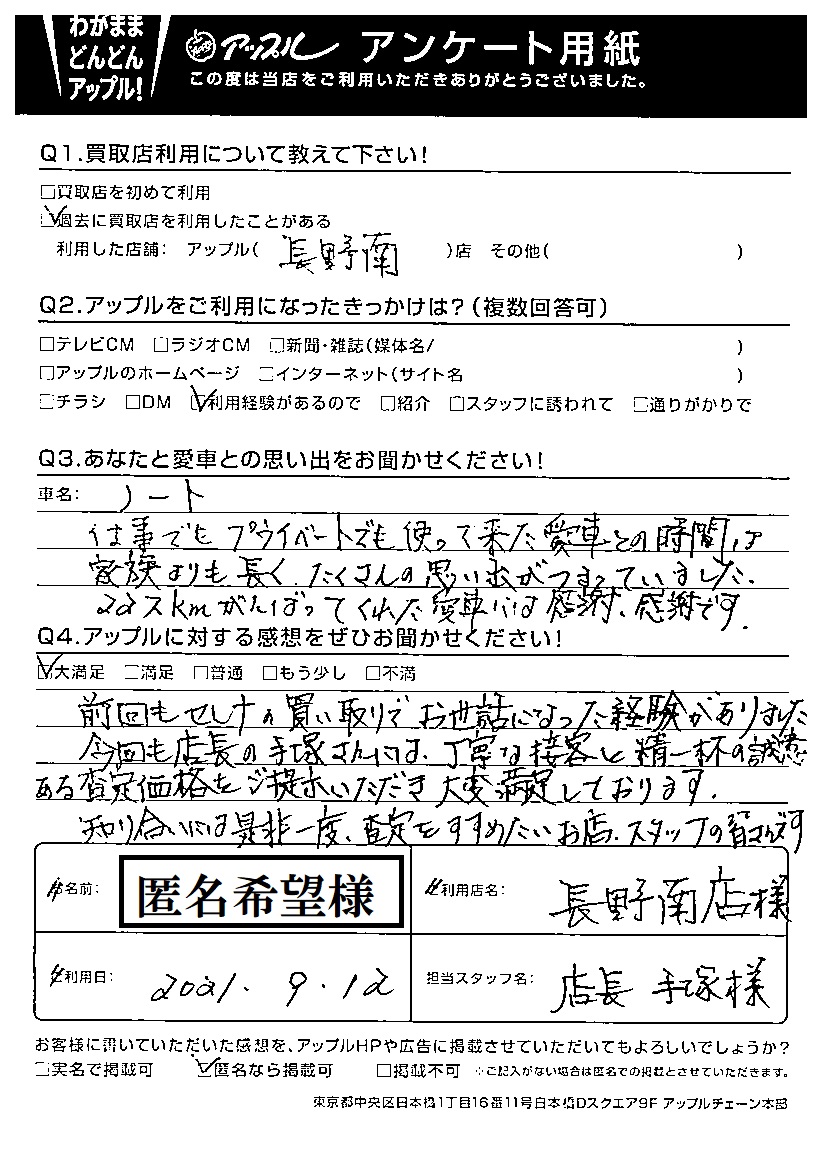 わがまま
どんどん
アップル!
アップル アンケート用紙
この度は当店をご利用いただきありがとうございました。
Q1.買取店利用について教えて下さい!
□買取店を初めて利用
☑過去に買取店を利用したことがある
利用した店舗: アップル( 長野南 )店 その他( )
Q2.アップルをご利用になったきっかけは?(複数回答可)
□テレビCM □ラジオCM □新聞・雑誌(媒体名/ )
□アップルのホームページ □インターネット(サイト名 )
□チラシ □DM ☑利用経験があるので □紹介 □スタッフに誘われて □通りがかりで
Q3.あなたと愛車との思い出をお聞かせください!
車名: ノート
仕事でもプライベートでも使って来た愛車との時間は
家族よりも長く、たくさんの思い出がつまっていました.
22万kmがんばってくれた愛車には感謝、感謝です.
Q4.アップルに対する感想をぜひお聞かせください!
☑大満足 □満足 □普通 □もう少し □不満
前回もセレナの買い取りでお世話になった経験がありました
今回も店長の手塚さんには、丁寧な接客と精一杯の誠意
ある査定価格をご提示いただき大変満足しております.
知り合いには是非一度、査定をすすめたいお店、スタッフの皆さんです
お名前: 匿名希望様
ご利用店名: 長野南店様
ご利用日: 2021. 9. 12
担当スタッフ名: 店長 手塚様
お客様に書いていただいた感想を、アップルHPや広告に掲載させていただいてもよろしいでしょうか?
□実名で掲載可 ☑匿名なら掲載可 □掲載不可 ※ご記入がない場合は匿名での掲載とさせていただきます。
東京都中央区日本橋1丁目16番11号日本橋Dスクエア9F アップルチェーン本部